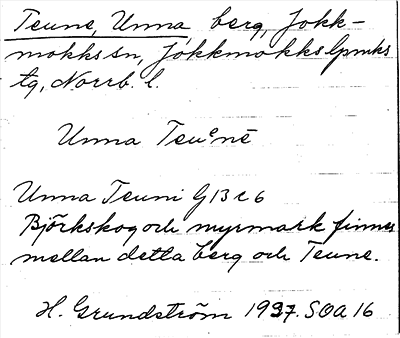 Teune, Unna, berg, Jokk-
mokks sn, Jokkmokks lpmks
tg, Norrb. l.
Unna Teuᵉnē
Unna Teuni G13 c 6
Björkskog och myrmark finnes
mellan detta berg och Teune.
H. Grundström 1937. SOA 16